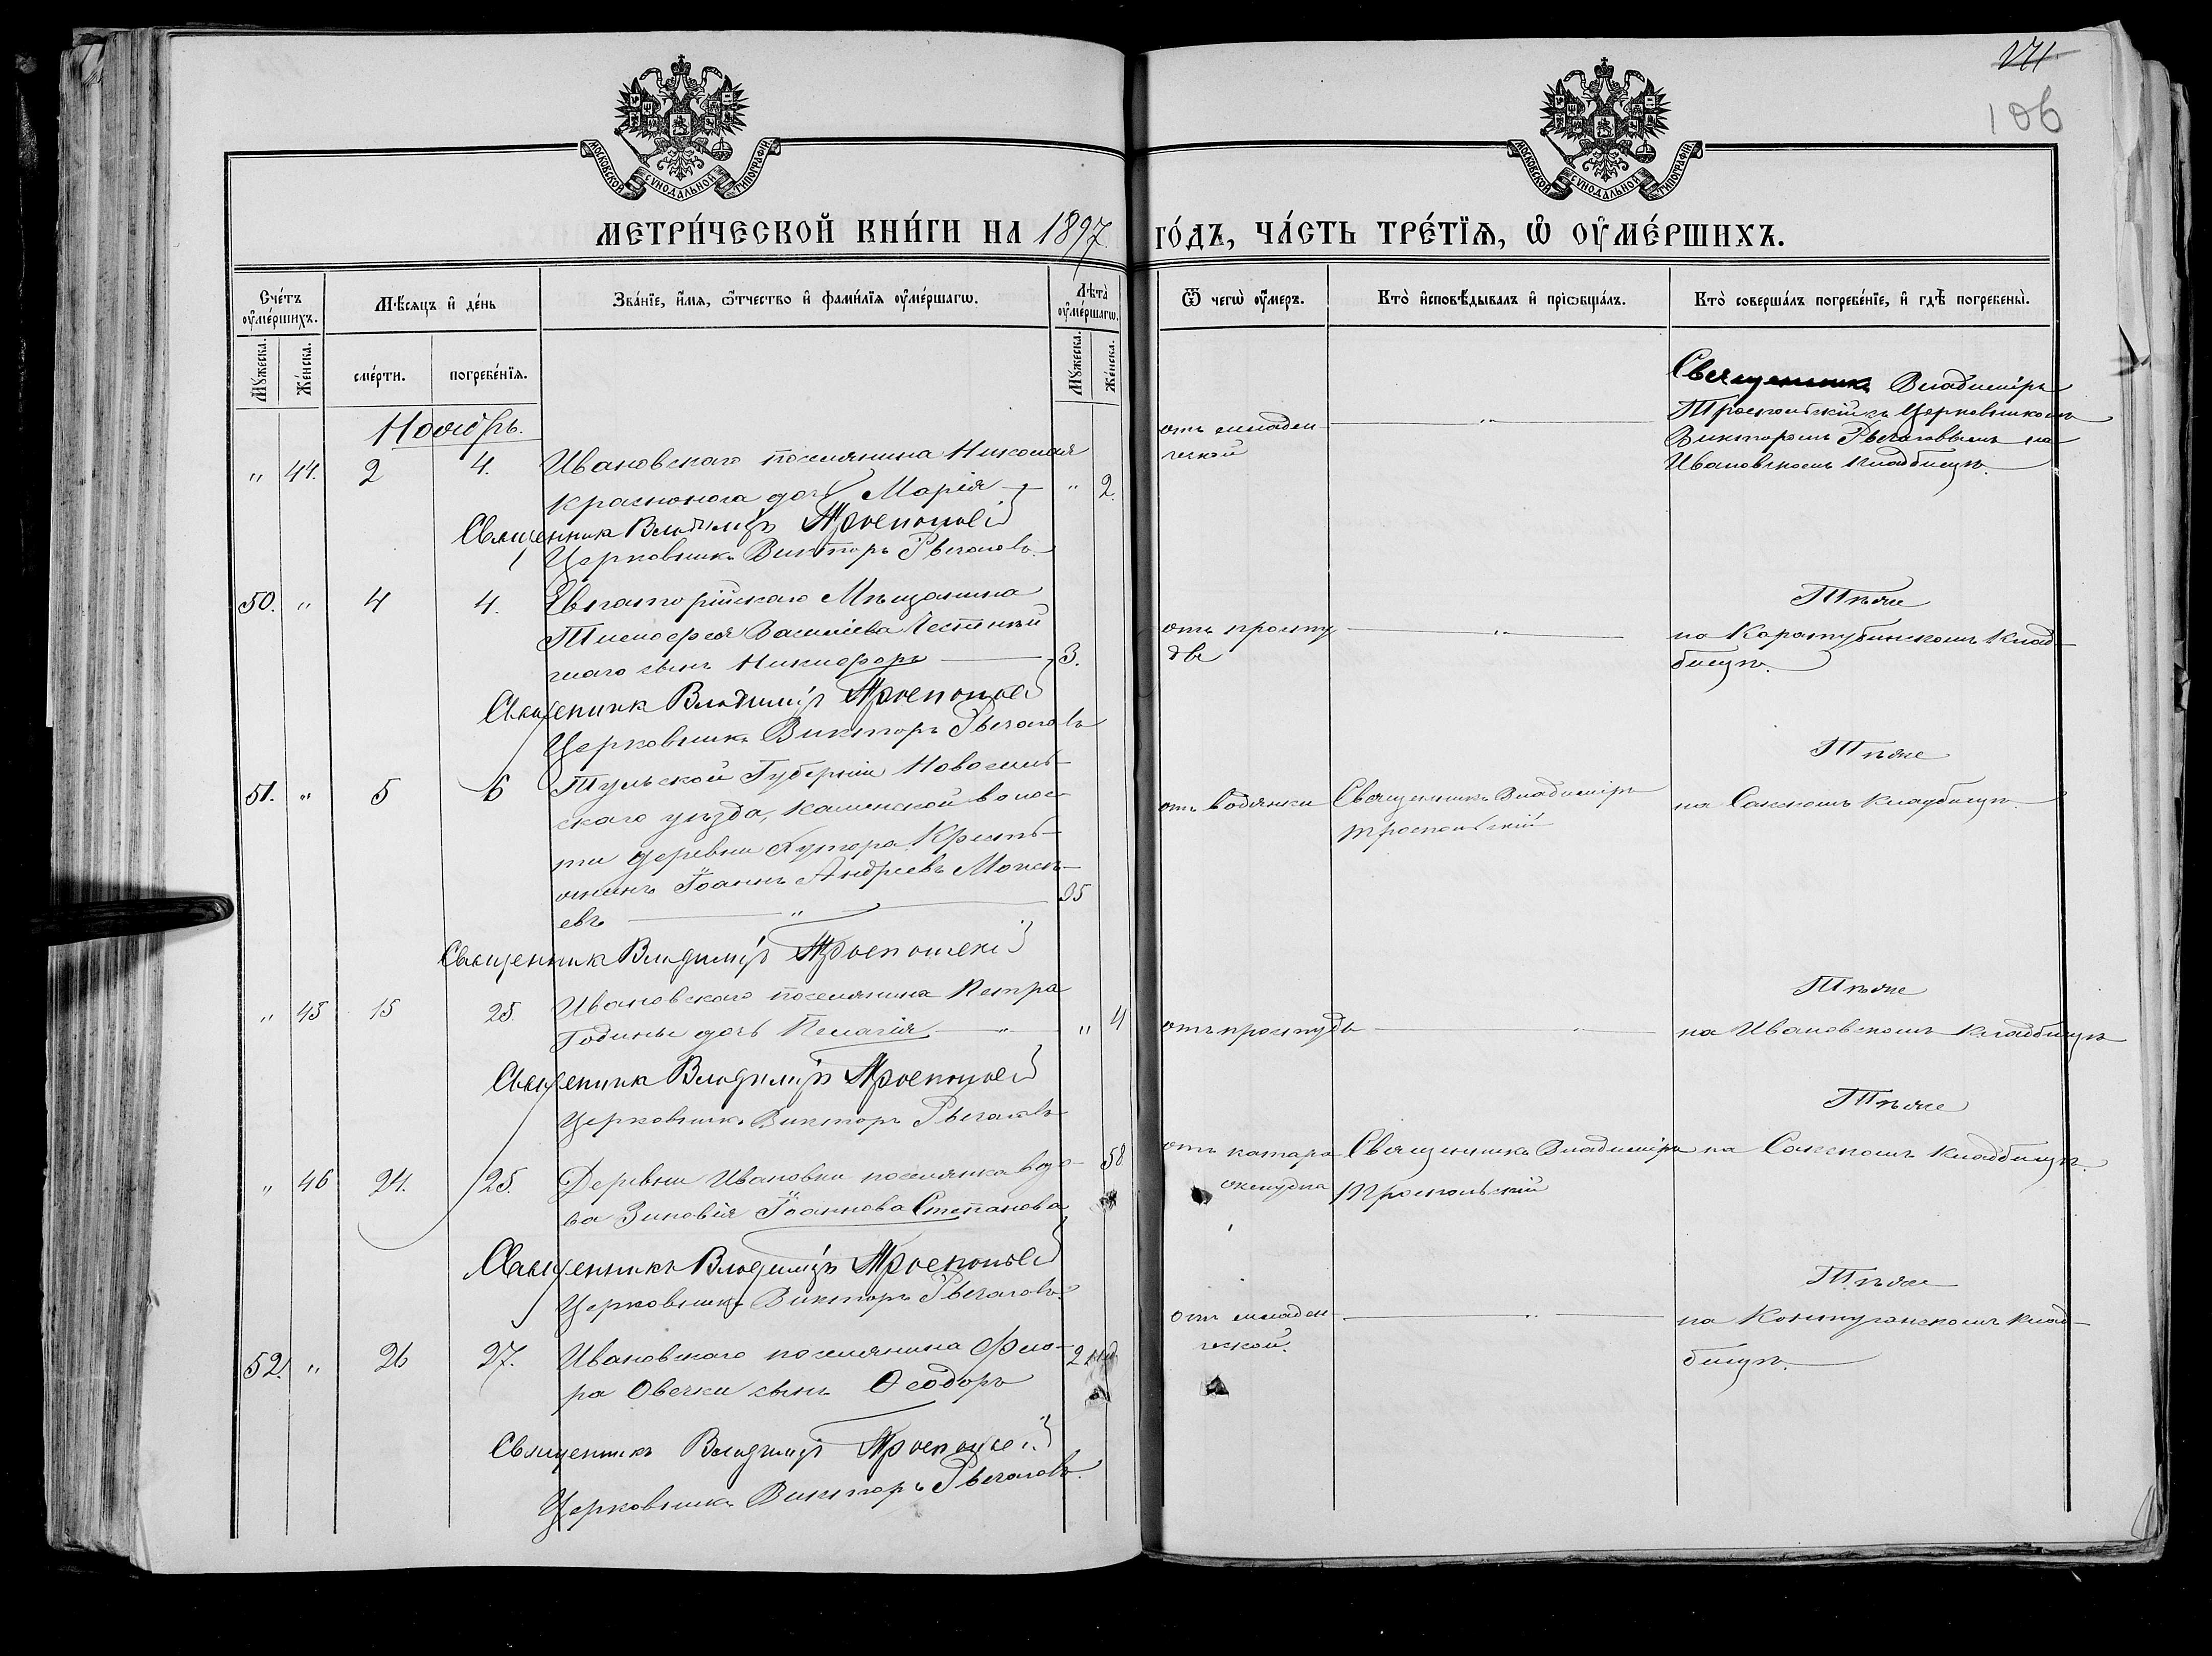 171
106
МОСКОВСКОЙ СѴНОДАЛЬНОЙ ТИПОГРАФІИ
МОСКОВСКОЙ СѴНОДАЛЬНОЙ ТИПОГРАФІИ
МЕТРИ́ЧЕСКОЙ КНИ́ГИ НА 1897 ГО́ДЪ, ЧА́СТЬ ТРЕ́ТІѦ, Ѡ ОУМЕ́РШИХЪ.
Счетъ оумершихъ.
Мѣсяцъ и день
Званіе, имя, ѿчество и фамилія оумершагѡ.
Лѣта оумершагѡ.
Ѿ чегѡ оумеръ.
Кто исповѣдывалъ и пріѡбщалъ.
Кто совершалъ погребеніе, и гдѣ погребены.
Мужеска.
Женска.
смерти.
погребенія.
Мужеска.
Женска.
Ноябрь.
" 44. 2 4. Ивановскаго поселянина Николая
Краснонога дочь Марія " 2.
отъ младен
ческой
Священникъ Владиміръ
Троепольскій съ Церковникомъ
Викторомъ Рычаговымъ на
Ивановскомъ кладбищѣ.
Священникъ Владиміръ Троепольскій
Церковникъ Викторъ Рычаговъ
50. " 4 4. Евпаторійскаго Мѣщанина
Тимофея Васильева
сынъ Никифоръ 3.
отъ просту
ды
Тѣже
на Каратубинскомъ клад-
бищѣ.
Священникъ Владиміръ Троепольскій
Церковникъ Викторъ Рычаговъ
51. " 5 6 Тульской Губерніи Новосиль-
скаго уѣзда, Каменской волос-
ти деревни Хутора Кресть-
янинъ Іоаннъ Андреевъ Мокѣ-
евъ " 25
отъ водянки
Священникъ Владиміръ
Троепольскій
Тѣже
на Сакскомъ кладбищѣ.
Священникъ Владиміръ Троепольскій
" 45 15 25. Ивановскаго поселянина Петра
Годины дочь Пелагія " " 4
отъ простуды
Тѣже
на Ивановскомъ кладбищѣ
Священникъ Владиміръ Троепольскій
Церковникъ Викторъ Рычаговъ
" 46 24. 25. Деревни Ивановки поселянка вдо-
ва Зиновія Іоаннова Степанова 58
отъ катара
желудка
Священникъ Владиміръ
Троепольскій
Тѣже
на Сакскомъ кладбищѣ.
Священникъ Владиміръ Троепольскій
Церковникъ Викторъ Рычаговъ
52. " 26 27. Ивановскаго поселянина Фло-
ра Овечки сынъ Ѳеодоръ 2 нед.
отъ младен
ческой.
Тѣже
на Контуганскомъ клад-
бищѣ.
Священникъ Владиміръ Троепольскій
Церковникъ Викторъ Рычаговъ.